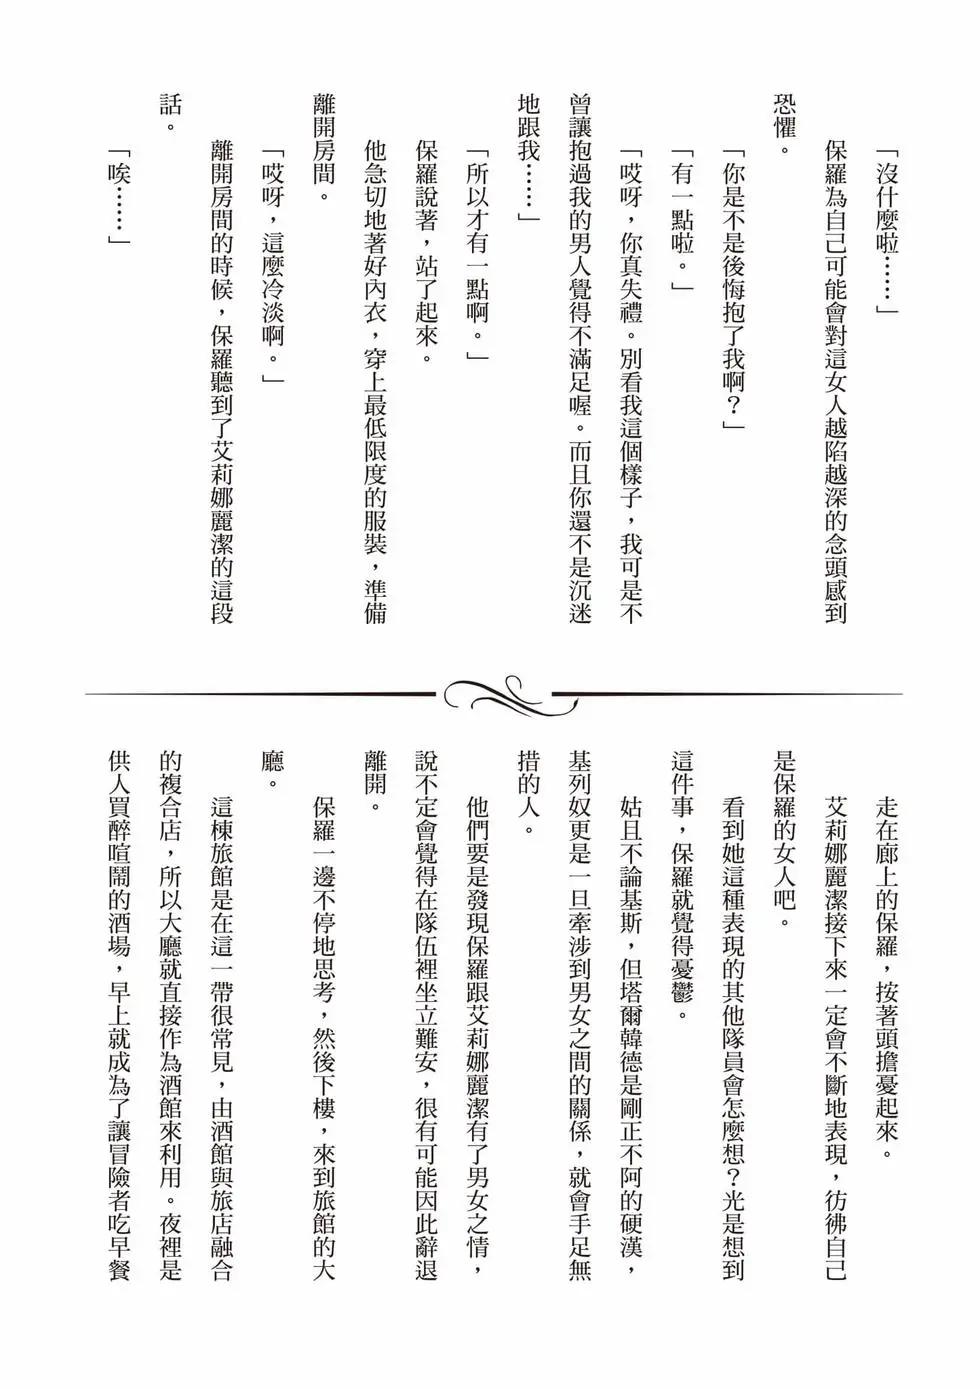 「沒什麼啦……」
保羅為自己可能會對這女人越陷越深的念頭感到
恐懼。
「你是不是後悔抱了我啊？」
「有一點啦。」
「哎呀，你真失禮。別看我這個樣子，我可是不
曾讓抱過我的男人覺得不滿足喔。而且你還不是沉迷
地跟我……」
「所以才有一點啊。」
保羅說著，站了起來。
他急切地著好內衣，穿上最低限度的服裝，準備
離開房間。
「哎呀，這麼冷淡啊。」
離開房間的時候，保羅聽到了艾莉娜麗潔的這段
話。
「唉……」
走在廊上的保羅，按著頭擔憂起來。
艾莉娜麗潔接下來一定會不斷地表現，彷彿自己
是保羅的女人吧。
看到她這種表現的其他隊員會怎麼想？光是想到
這件事，保羅就覺得憂鬱。
姑且不論基斯，但塔爾韓德是剛正不阿的硬漢，
基列奴更是一旦牽涉到男女之間的關係，就會手足無
措的人。
他們要是發現保羅跟艾莉娜麗潔有了男女之情，
說不定會覺得在隊伍裡坐立難安，很有可能因此辭退
離開。
保羅一邊不停地思考，然後下樓，來到旅館的大
廳。
這棟旅館是在這一帶很常見，由酒館與旅店融合
的複合店，所以大廳就直接作為酒館來利用。夜裡是
供人買醉喧鬧的酒場，早上就成為了讓冒險者吃早餐